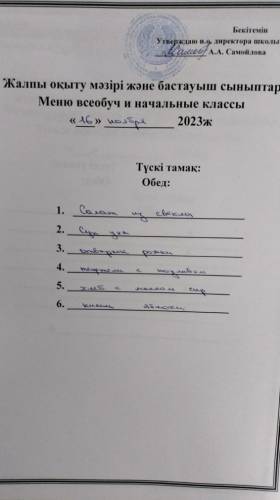 Бекітемін
Утверждаю и.о. директора школы
А.А. Самойлова
Жалпы оқыту мәзірі және бастауыш сыныптар
Меню всеобуч и начальные классы
«16» ноября 2023ж
Түскі тамақ:
Обед:
1. Салат из свеклы
2. Суп уха
3. отварные рожки
4. тефтели с подливой
5. хлеб с маслом сыр
6. яблоки